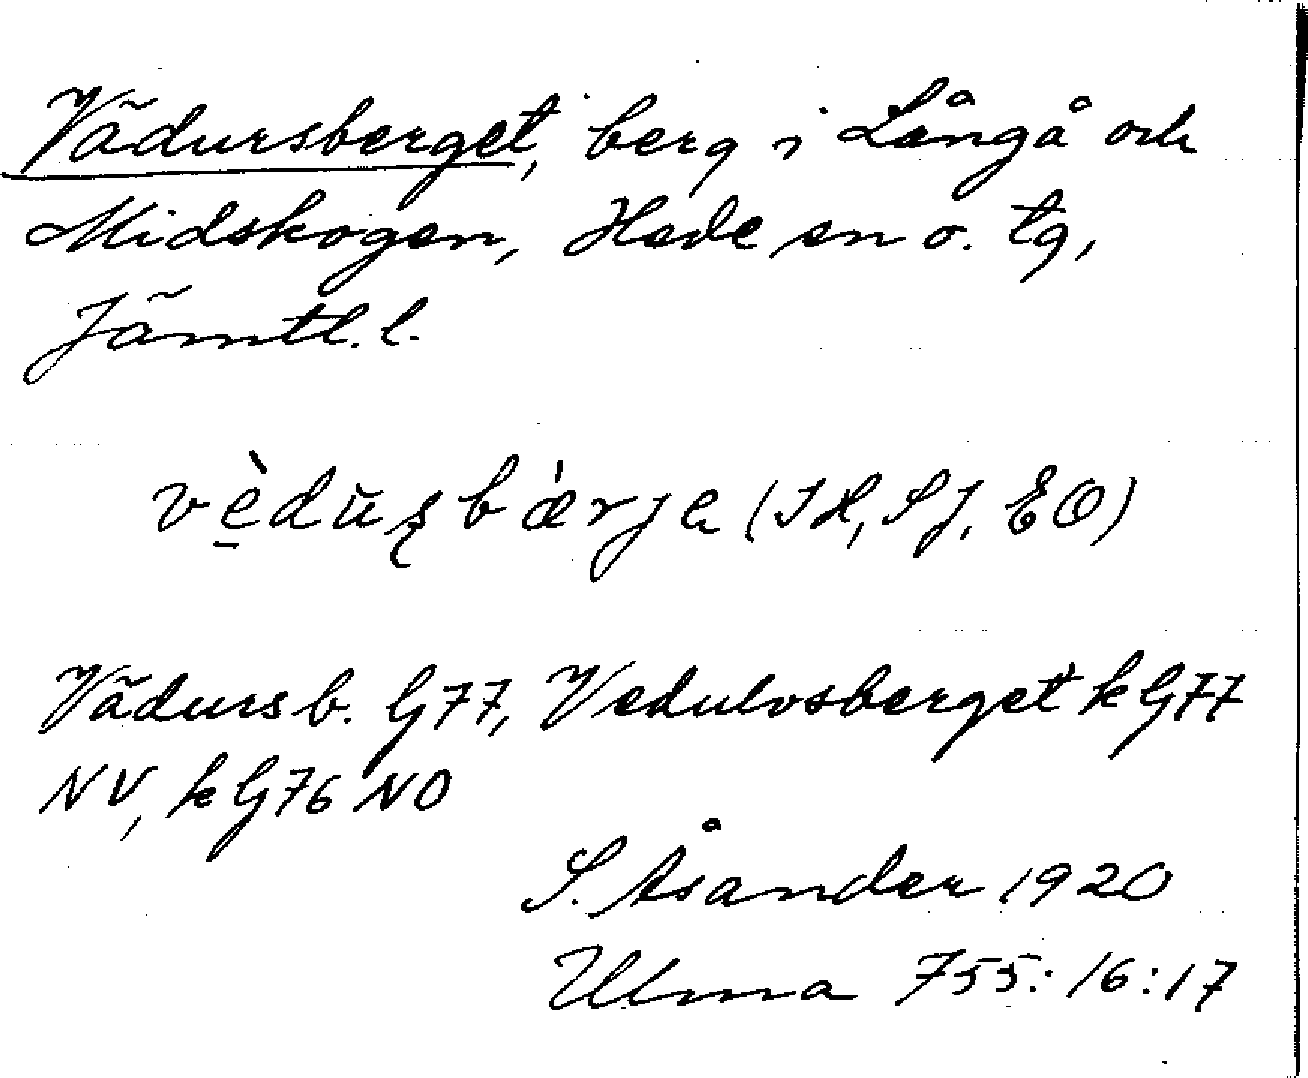 Vädursberget, berg i Långå och
Midskogen, Hede sn o. tg,
Jämtl. l.
vè̱dŭʂbǽrjɐ (IH, SJ, EO)
Vädursb. G77, Vedulvsberget k G77
NV, k G76 NO
S. Åsander 1920
Ulma 755:16:17